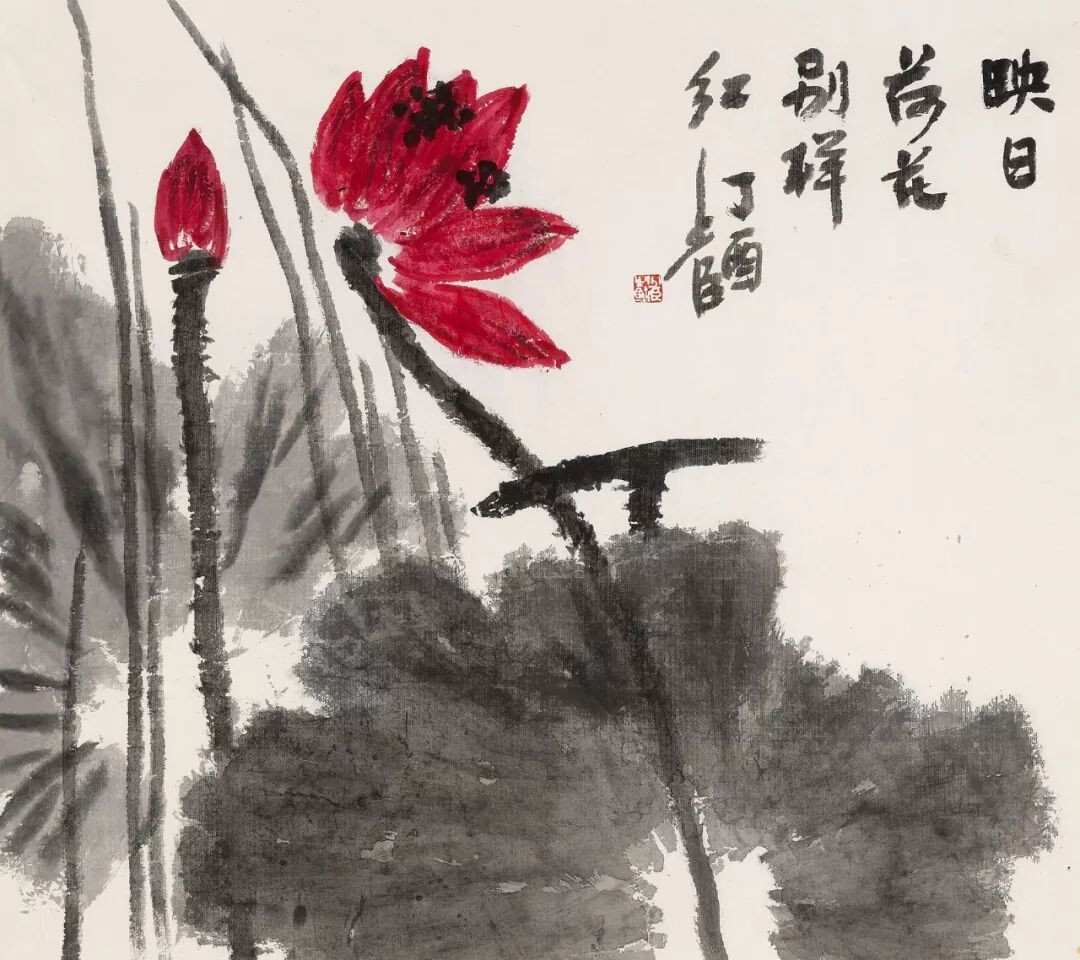 映日
荷花
别样
红
丁酉